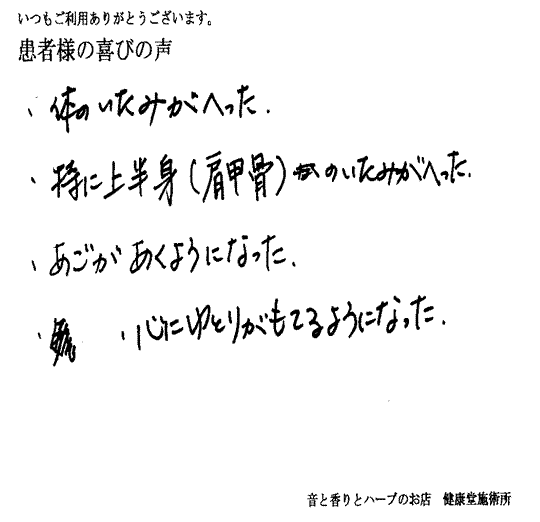 いつもご利用ありがとうございます。
患者様の喜びの声
、体のいたみがへった.
、特に上半身(肩甲骨)のいたみがへった.
、あごがあくようになった.
、心にゆとりがもてるようになった.
音と香りとハーブのお店 健康堂施術所